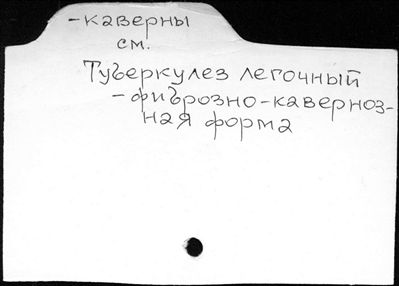 -каверны
см.
Туберкулез легочный
-фиброзно-каверноз-
ная форма